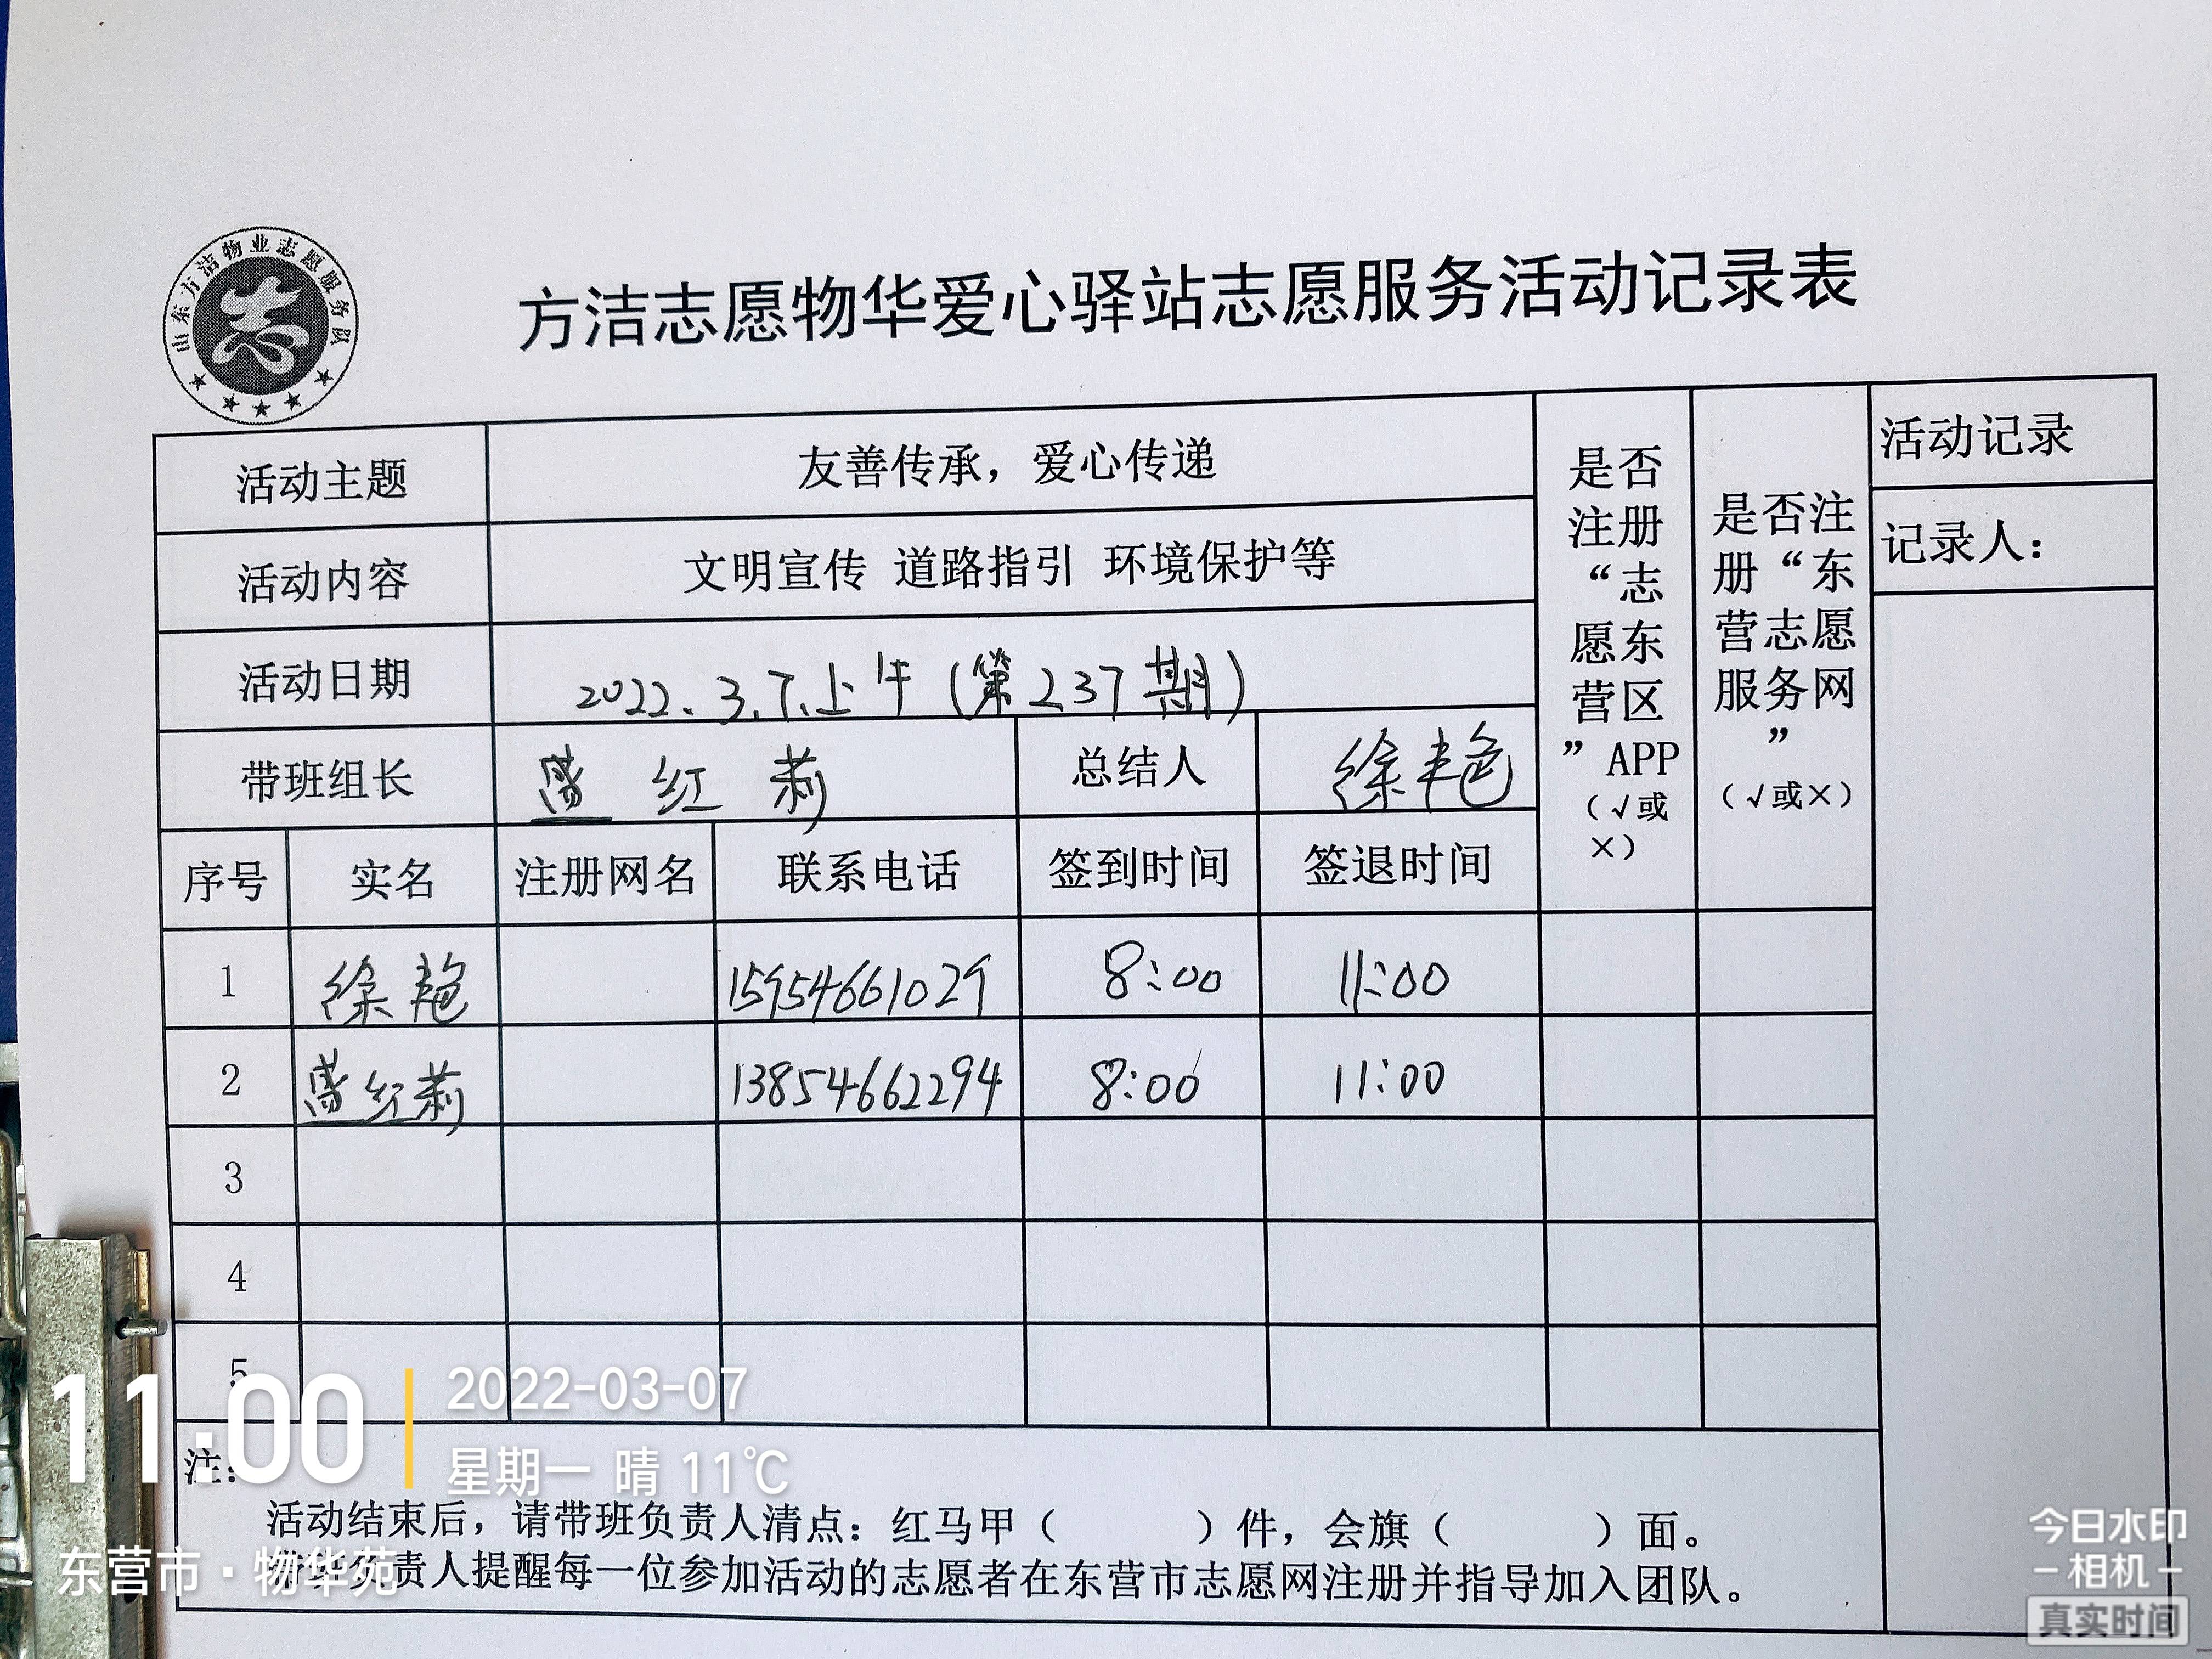 山东方洁物业志愿服务队
志
方洁志愿物华爱心驿站志愿服务活动记录表
活动主题 友善传承，爱心传递
活动内容 文明宣传 道路指引 环境保护等
活动日期 2022.3.7.上午（第237期）
带班组长 红莉 总结人 徐艳
是否注册“志愿东营区”APP（√或×）
是否注册“东营志愿服务网”（√或×）
活动记录
记录人：
序号 实名 注册网名 联系电话 签到时间 签退时间
1 徐艳 15954661029 8:00 11:00
2 红莉 13854662294 8:00 11:00
3
4
5
注：
活动结束后，请带班负责人清点：红马甲（ ）件，会旗（ ）面。
带班负责人提醒每一位参加活动的志愿者在东营市志愿网注册并指导加入团队。
11:00
2022-03-07
星期一 晴 11℃
东营市·物华苑
今日水印
-相机-
真实时间